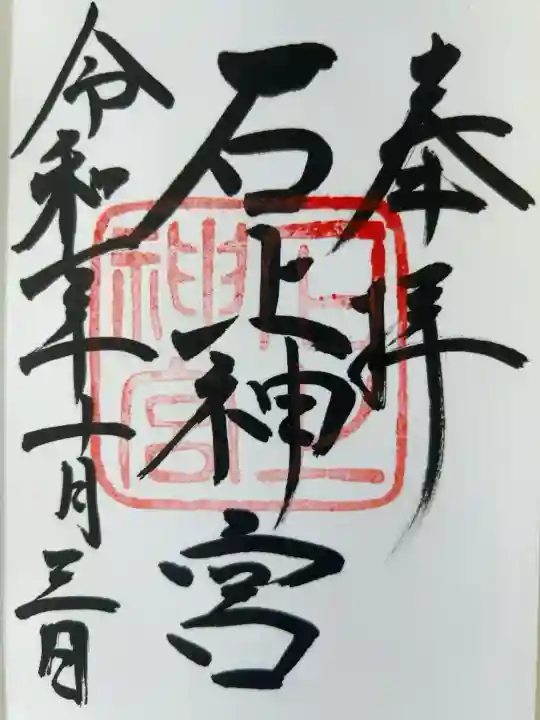 奉拝
石上神宮
令和一年十月三日
石上
神宮